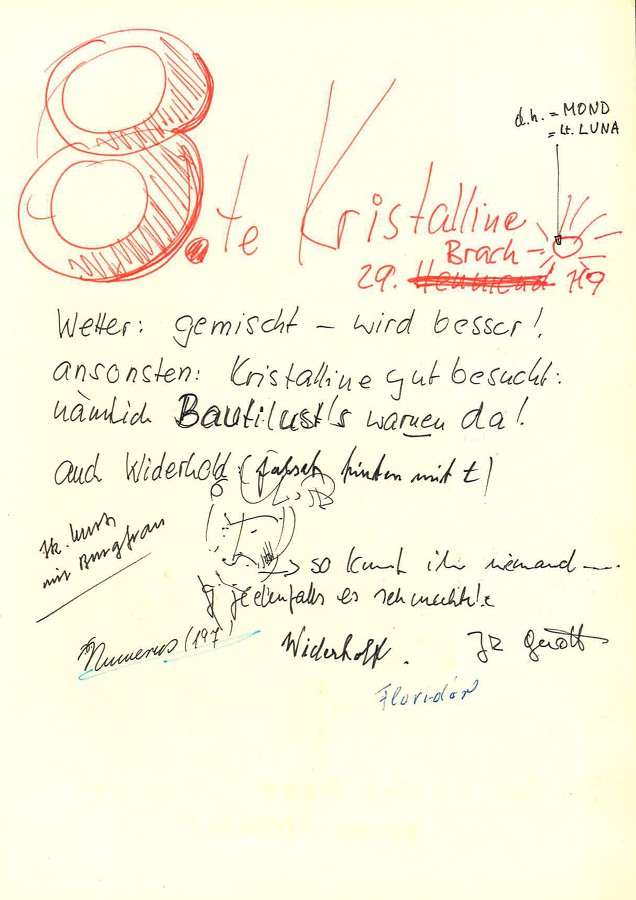 8.te Kristalline
d.h. = MOND
= lt. LUNA
Brach-
29. Heumond 119
Wetter: gemischt – wird besser!
ansonsten: Kristalline gut besucht:
nämlich Bautilust's waren da!
auch Widerhold (falsch hinten mit t)
mit Burgfrau
so kennt ihn niemand —.
jedenfalls es schmeckte
Numerus (197)
Widerholt.
JR
Floridor